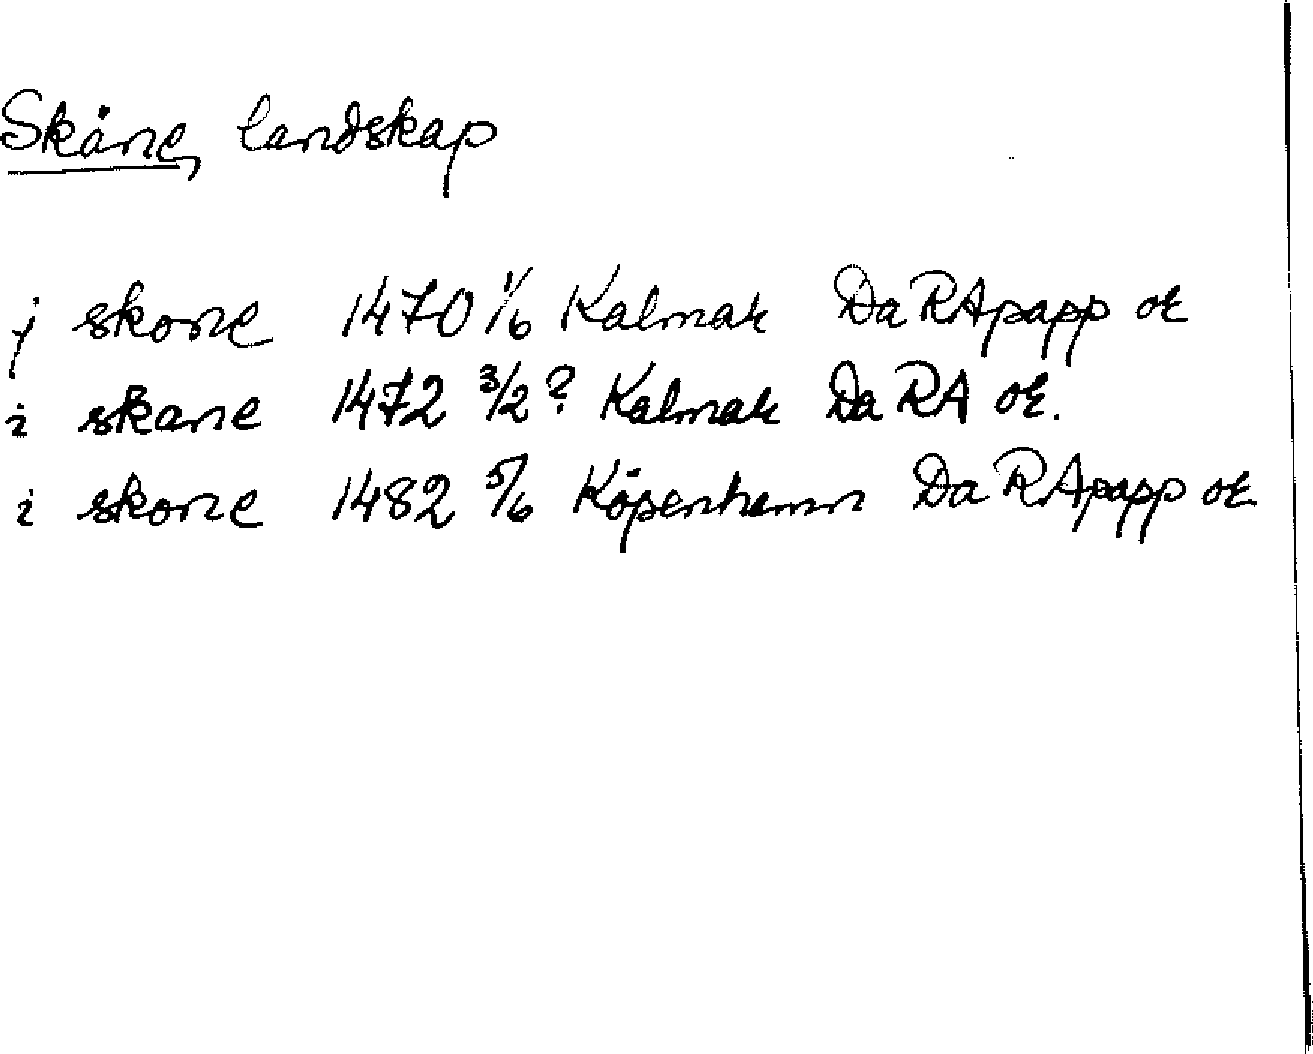 Skåne, landskap
j skone 1470 1/6 Kalmar Da RApapp or
i skane 1472 3/2? Kalmar Da RA or.
i skone 1482 5/6 Köpenhamn Da RApapp or